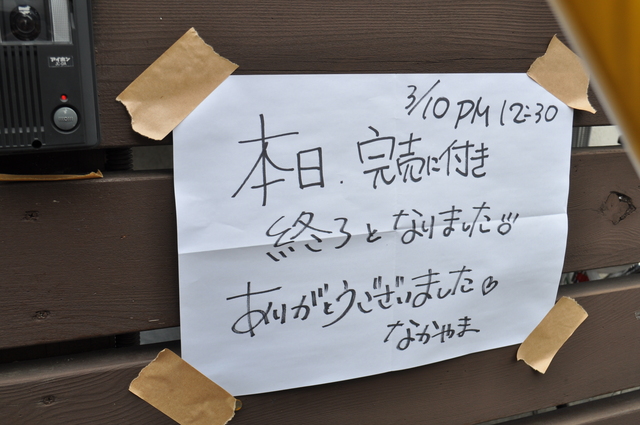 アイホン
3/10 PM 12:30
本日、完売に付き
終了となりました!!
ありがとうございました♡
なかやま